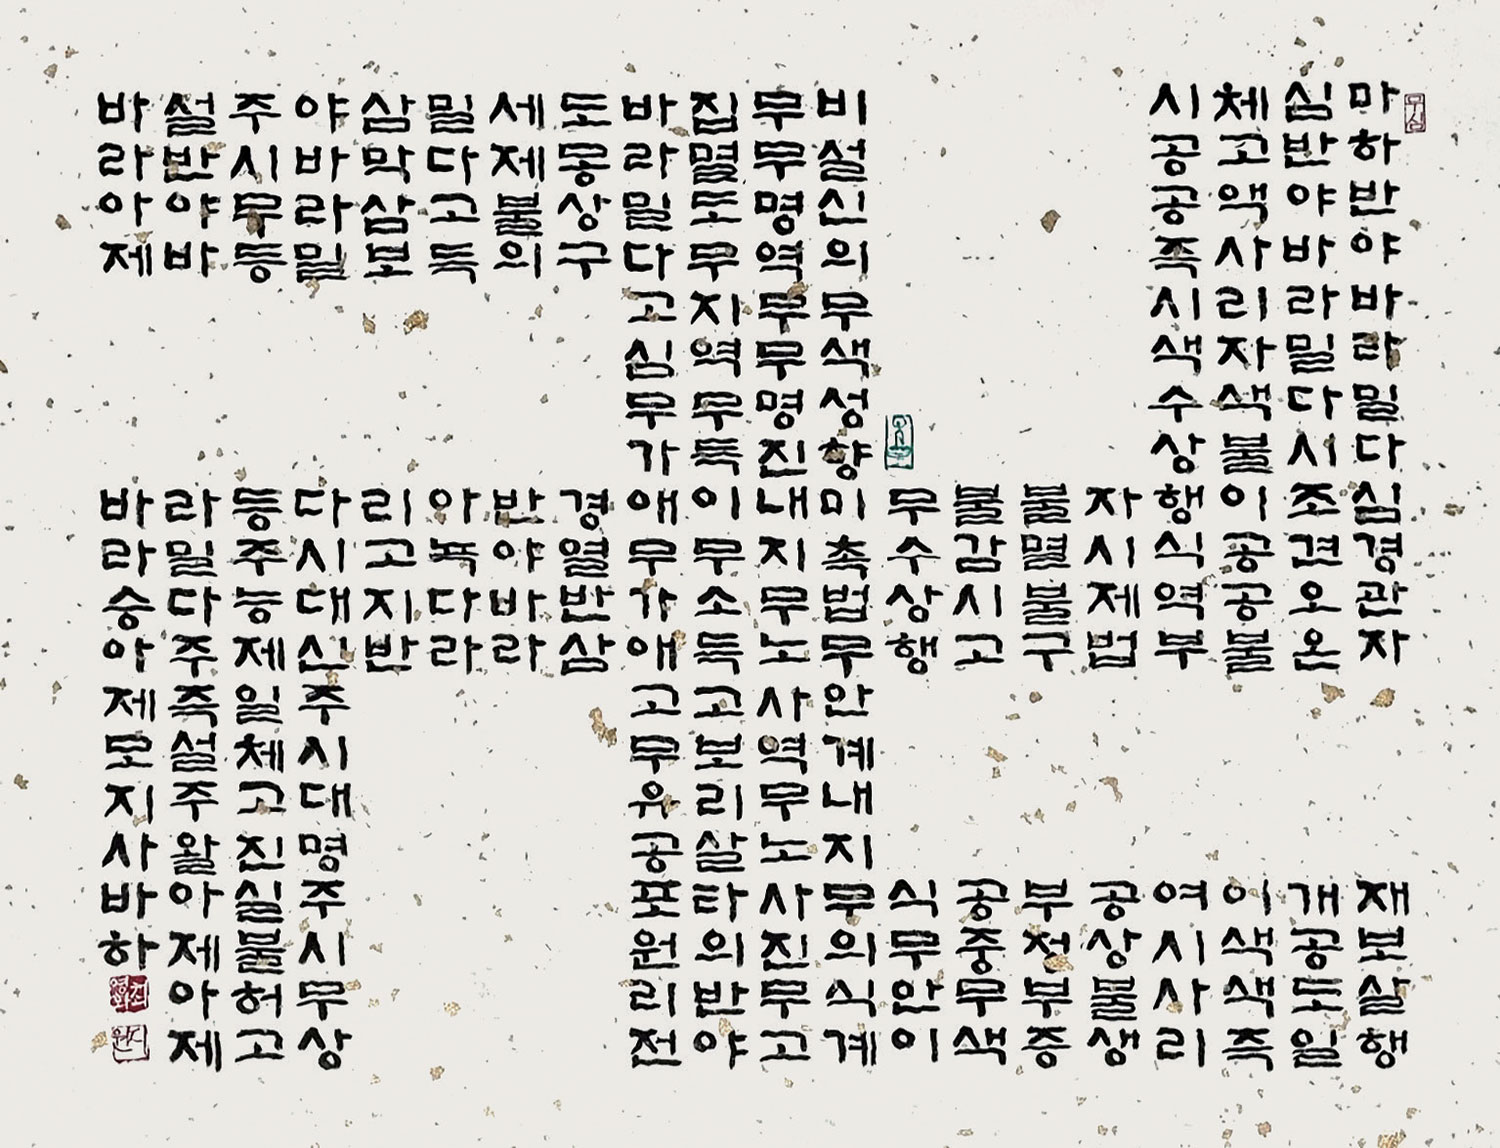 무심
마하반야바라밀다심경관자 재보살행
심반야바라밀다시조견오온 개공도일
체고액사리자색불이공공불 이색색즉
시공공즉시색수상행식역부 여시사리
자시제법 공상불생
불멸불구 부정부증
불감시고 공중무색
무수상행 식무안이
비설신의무색성향미촉법무안계내지무의식계
무무명역무무명진내지무노사역무노사진무고
집멸도무지역무득이무소득고보리살타의반야
바라밀다고심무가애무가애고무유공포원리전
도몽상구 경열반삼
세제불의 반야바라
밀다고득 아녹다라
삼막삼보 리고지반
야바라밀 다시대신주시대명주시무상
주시무등 등주능제일체고진실불허고
설반야바 라밀다주즉설주왈아제아제
바라아제 바라승아제모지사바하